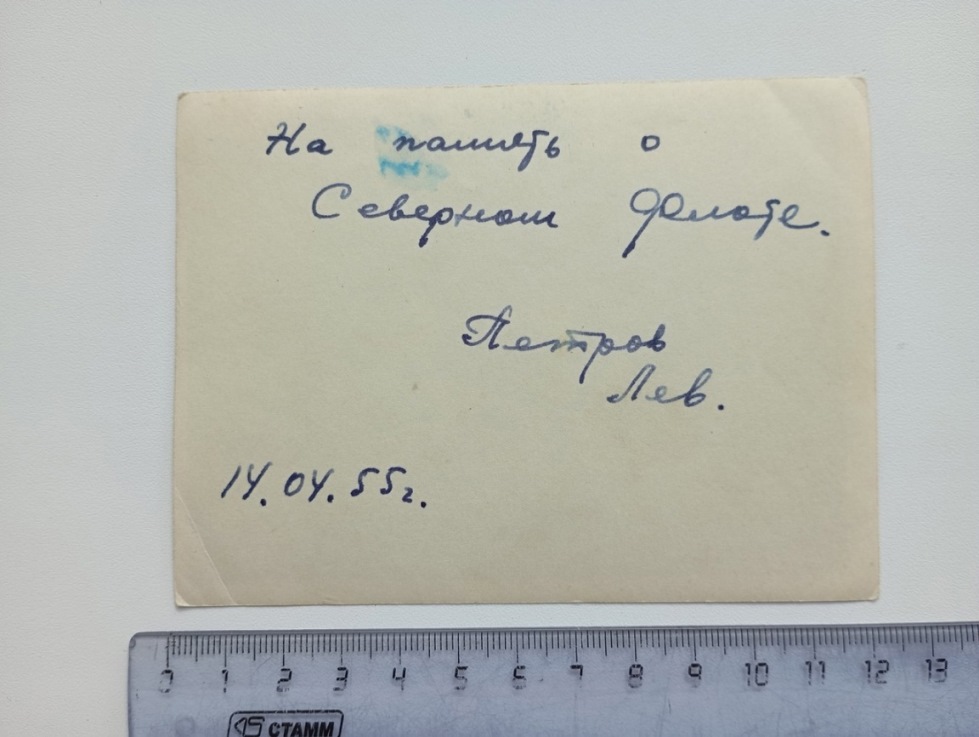 На память о
Северном Флоте.
Петров
Лев.
14.04.55г.
0 1 2 3 4 5 6 7 8 9 10 11 12 13
СТАММ